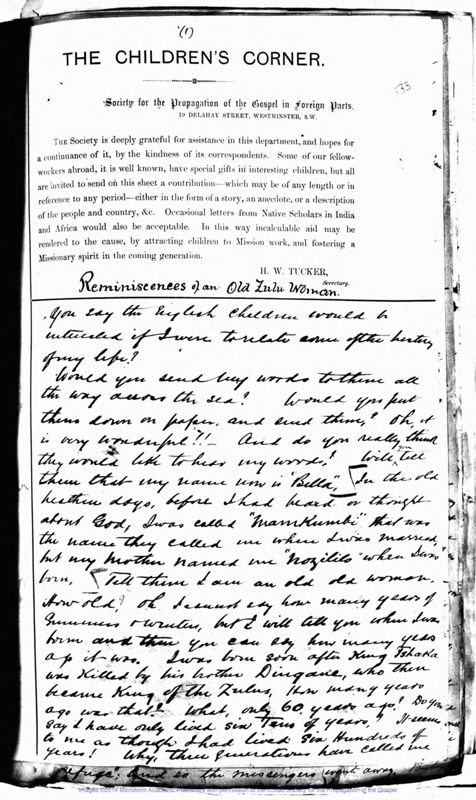 (1)
THE CHILDREN'S CORNER.
33
Society for the Propagation of the Gospel in Foreign Parts.
19 DELAHAY STREET, WESTMINSTER, S.W.
THE Society is deeply grateful for assistance in this department, and hopes for
a continuance of it, by the kindness of its correspondents. Some of our fellow-
workers abroad, it is well known, have special gifts in interesting children, but all
are invited to send on this sheet a contribution—which may be of any length or in
reference to any period—either in the form of a story, an anecdote, or a description
of the people and country, &c. Occasional letters from Native Scholars in India
and Africa would also be acceptable. In this way incalculable aid may be
rendered to the cause, by attracting children to Mission work, and fostering a
Missionary spirit in the coming generation.
H. W. TUCKER,
Secretary.
Reminiscences of an Old Zulu Woman.
You say the English Children would be
interested if I were to relate some of the history
of my life?
Would you send my words to them all
the way across the sea? Would you put
them down on paper, and send them? Oh, it
is very wonderful?!- And do you really think
they would like to hear my words? Will you tell
them that my name now is "Bella", [In the old
heathen days, before I had heard or thought
about God, I was called "MamKumbi" that was
the name they called me when I was married,
but my Mother named me "Nozilito" when I was
born, [Tell them I am an old old woman.
How old? Oh I cannot say how many years of
Summers & winters, but I will tell you when I was
born and then you can say how many years
ago it was. I was born soon after King Tshaka
was killed by his brother Dingane, who then
became King of the Zulus, How many years
ago was that? What, only 60 years ago? Do you
say I have only lived six Tens of years," It seems
to me as though I had lived Six Hundreds of
years! Why, three generations have called me
and so the messengers went away
Images ©2014 Microform Academic Publishers with permission of the United Society for the Propagation of the Gospel